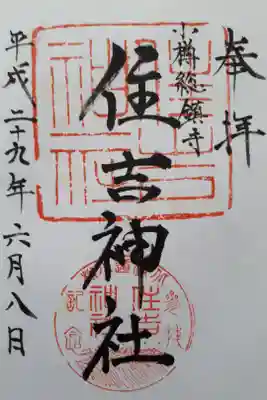 奉拝
小樽総鎮守
住吉神社
平成二十九年六月八日
住吉神社